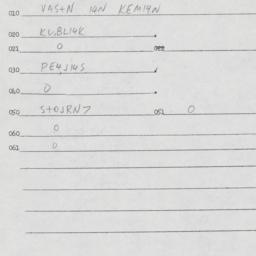 010 VAS+N I4N KEMI4N
020 KUBLI4K
021 0
030 PE4JI4S
040 0
050 S+OJRN7 051 0
060 0
061 0